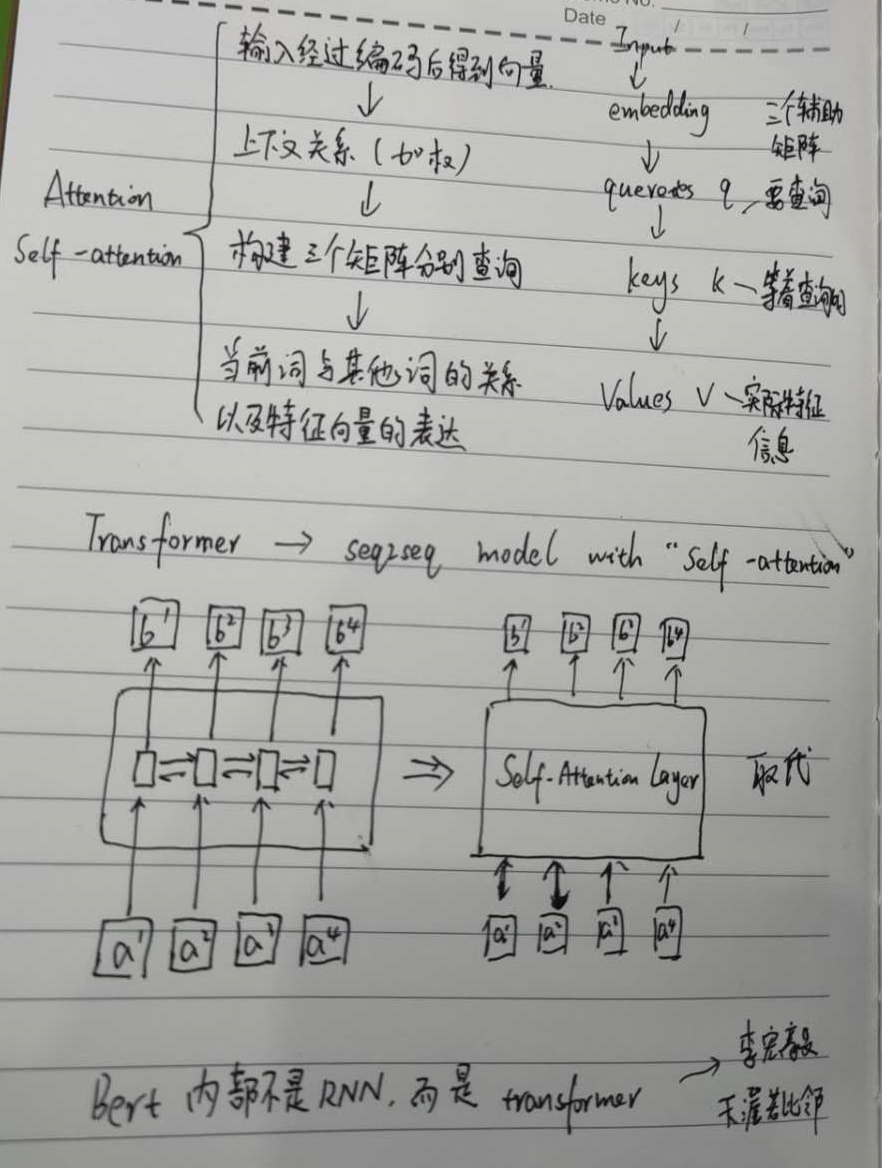 Date / /
Attention
Self-attention
输入经过编码后得到向量.
↓
上下文关系(加权)
↓
构建三个矩阵分别查询
↓
当前词与其他词的关系
以及特征向量的表达
Input
↓
embedding 三个辅助
矩阵
↓
q, 要查询
↓
keys k 一等着查询的
↓
Values V 一实际特征
信息
Transformer → seq2seq model with "Self-attention"
b¹ b² b³ b⁴
a¹ a² a³ a⁴
⇒
b¹ b² b³ b⁴
Self-Attention Layer 取代
a¹ a² a³ a⁴
Bert 内部不是RNN, 而是 transformer → 李宏毅
天涯若比邻